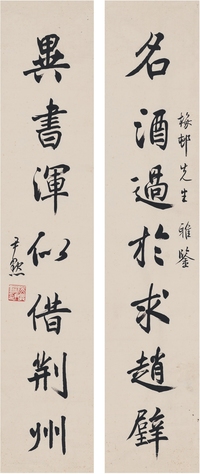 名酒過於求趙璧
梅邨先生雅鑒
異書渾似借荊州
尹默